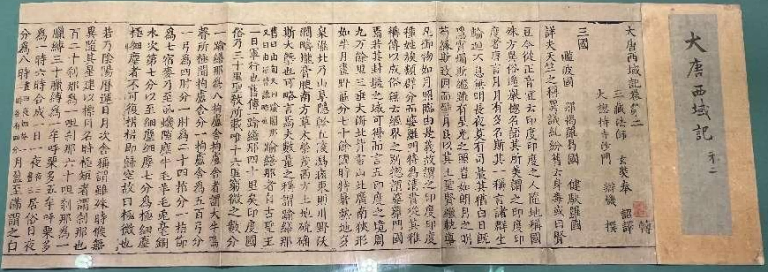 大唐西域記 第二
大唐西域記卷第二
三藏法師 玄奘奉 詔譯
大總持寺沙門 辯機 撰
三國
濫波國 那揭羅曷國 健馱邏國
詳夫天竺之稱異議糾紛舊云身毒或曰賢
豆今從正音宜云印度印度之人隨地稱國
殊方異俗遙舉總名語其所美謂之印度印
度者唐言月月有多名斯其一稱言諸群生
輪迴不息無明長夜莫有司晨其猶白日既
隱宵燭斯繼雖有星光之照豈如朗月之明
苟緣斯致因而譬月良以其土聖賢繼軌導
凡御物如月照臨由是義故謂之印度印度
種姓族類群分而婆羅門特為清貴從其雅
稱傳以成俗無云經界之別總謂婆羅門國
焉若其封疆之域可得而言五印度之境周
九万餘里三垂大海北背雪山北廣南狹形
如半月畫野區分七十餘國時特暑熱地多
泉濕北乃山阜隱軫丘陵舃鹵東則川野沃
潤疇壠膏腴南方草木榮茂西方土地磧确
斯大槩也可略言焉夫數量之稱謂踰繕那
舊曰由旬又曰踰闍那又曰由延皆訛略也 踰繕那者自古聖王
一日軍行也舊傳一踰繕那四十里矣印度國
俗乃三十里聖教所載唯十六里窮微之數分
一踰繕那為八拘盧舍拘盧舍者謂大牛鳴
聲所極聞稱拘盧舍分一拘盧舍為五百弓分
一弓為四肘分一肘為二十四指分一指節
為七宿麥乃至虱蟣隙塵牛毛羊毛兔毫銅
水次第七分以至細塵細塵七分為極細塵
極細塵者不可復析析即歸空故曰極微也
若乃陰陽曆運日月次舍稱謂雖殊時候無
異隨其星建以標月名時極短者謂剎那也
百二十剎那為一呾剎那六十呾剎那為一
臘縛三十臘縛為一牟呼栗多五牟呼栗多
為一時六時合成一日一夜 居俗日夜
分為八時 月盈至滿謂之白